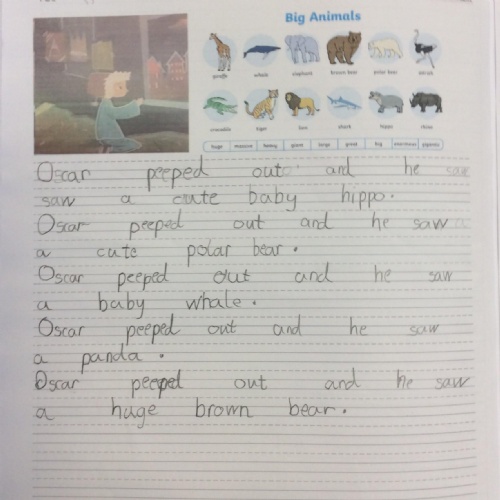 Big Animals
giraffe whale elephant brown bear polar bear ostrich
crocodile tiger lion shark hippo rhino
huge massive heavy giant large great big enormous gigantic
Oscar peeped out and he saw
saw a cute baby hippo.
Oscar peeped out and he saw a
a cute polar bear.
Oscar peeped out and he saw
a baby whale.
Oscar peeped out and he saw
a panda.
Oscar peeped out and he saw
a huge brown bear.